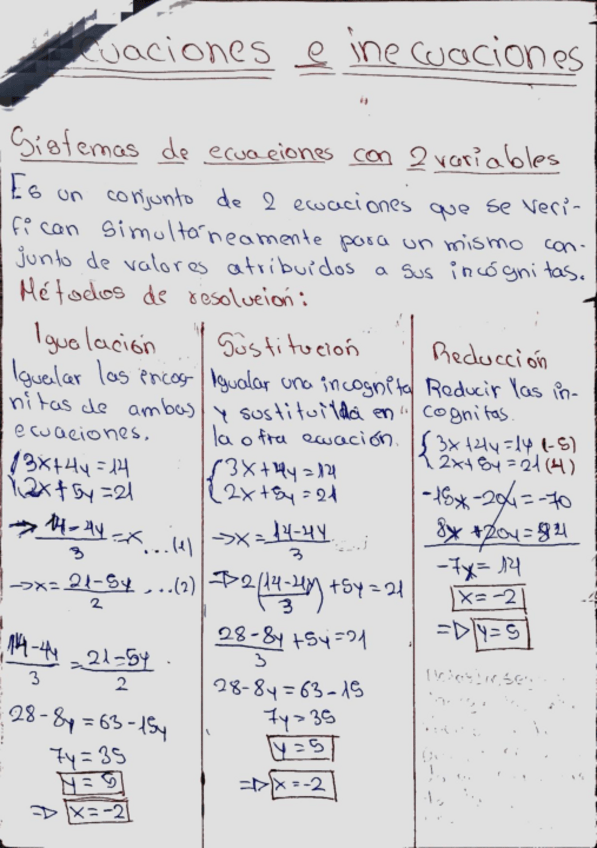 cuaciones e inecuaciones
Sistemas de ecuaciones con 2 variables
Es un conjunto de 2 ecuaciones que se veri-
fican simultáneamente para un mismo con-
junto de valores atribuidos a sus incógnitas.
Métodos de resolución:
Igualación
Igualar las incog-
nitas de ambas
ecuaciones.
3x+4y=14
2x+5y=21
→ 14-4y/3 = x ...(1)
→ x = 21-5y/2 ...(2)
14-4y/3 = 21-5y/2
28-8y=63-15y
7y=35
y=5
⇒ x=-2
Sustitución
Igualar una incognita
y sustituirla en
la otra ecuación.
3x+4y=14
2x+5y=21
→ x = 14-4y/3
⇒ 2(14-4y/3) + 5y = 21
28-8y/3 + 5y = 21
28-8y=63-15
7y=35
y=5
⇒ x=-2
Reducción
Reducir las in-
cognitas.
3x+4y=14 (-5)
2x+5y=21 (4)
-15x-20y=-70
8x+20y=84
-7x=14
x=-2
⇒ y=5